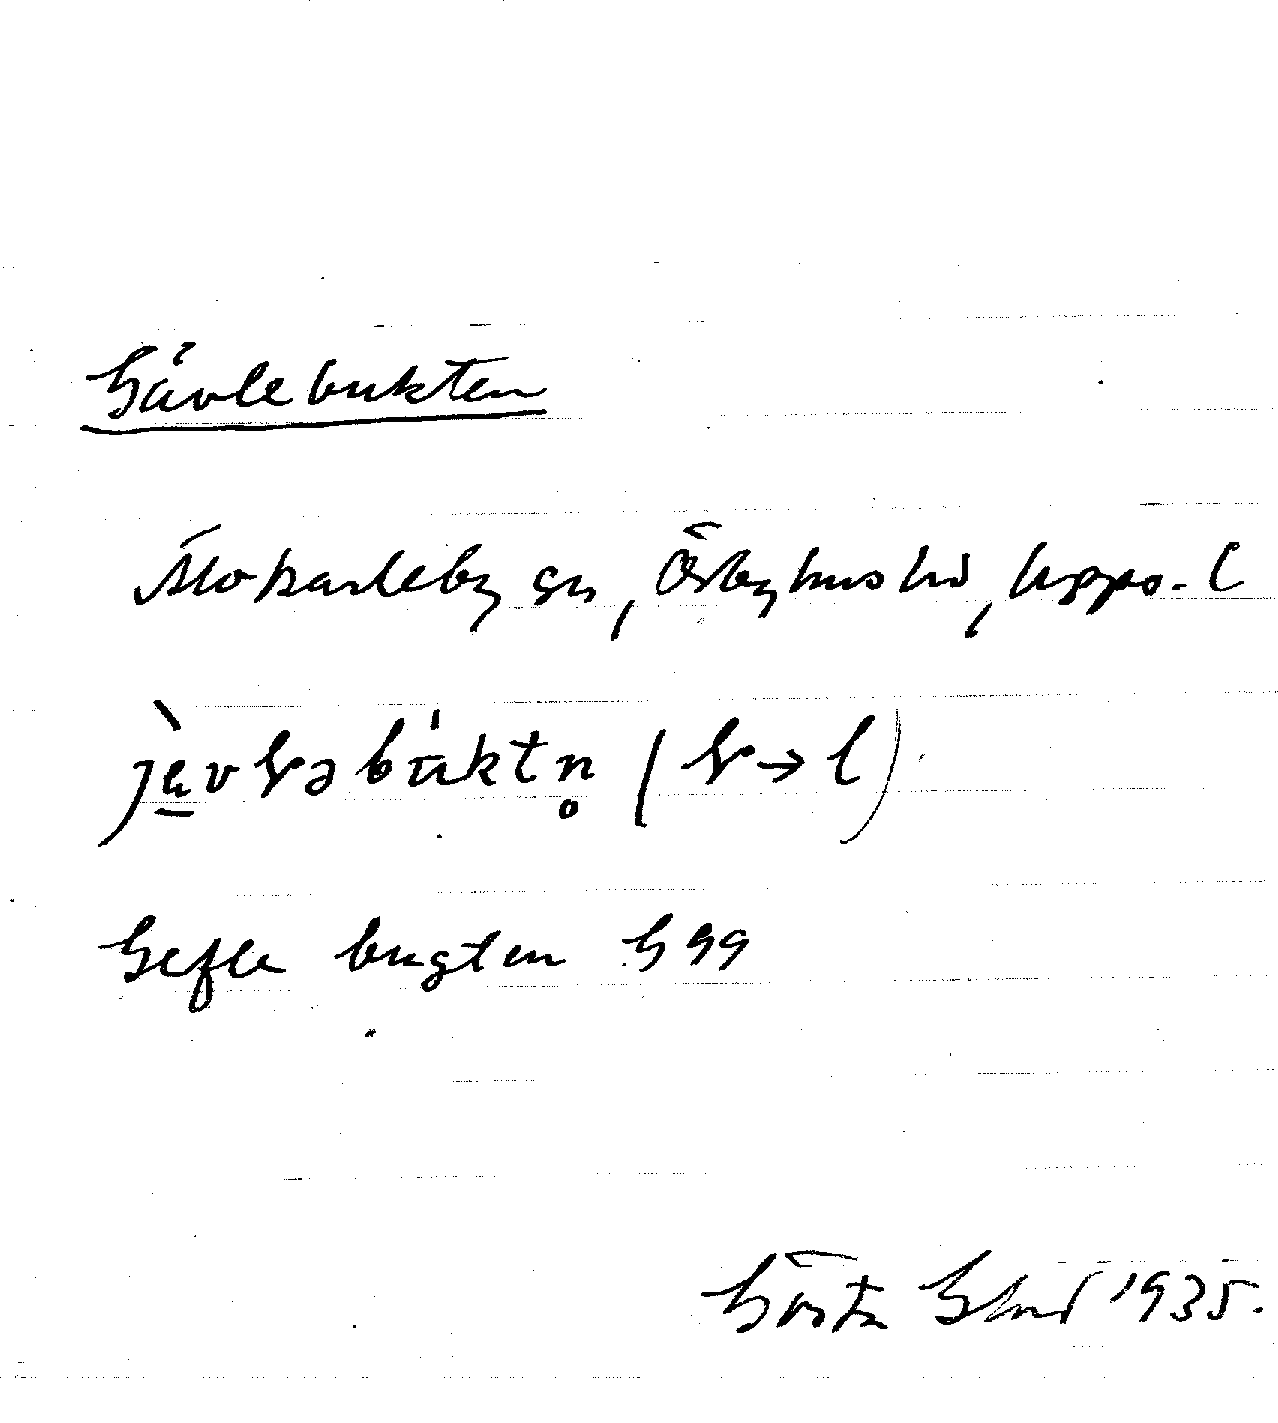 Gävlebukten
Älvkarleby sn, Örbyhus hd, Upps. l
jävlәbuktn̥ ( → l)
Gefle bugten G
Gösta 1935.